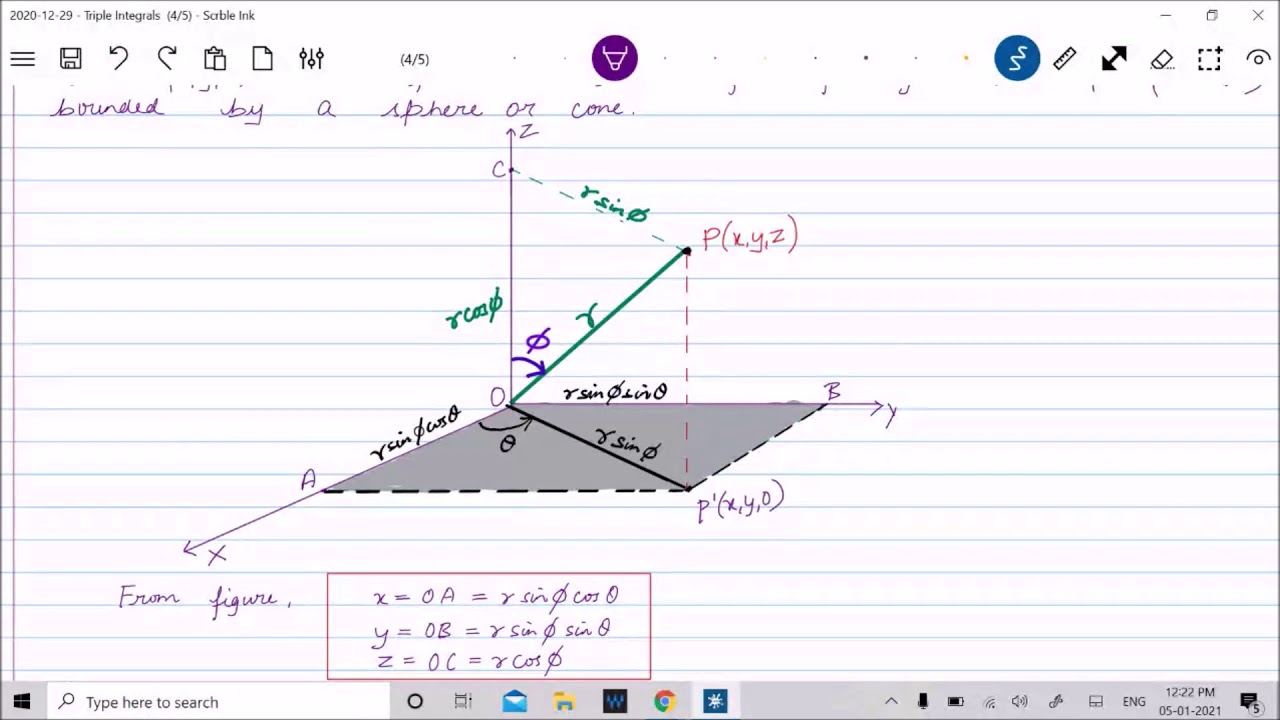 2020-12-29 - Triple Integrals (4/5) - Scrble Ink
(4/5)
bounded by a sphere or cone.
Z
C
r sinϕ
P(x,y,z)
r cosϕ
r
ϕ
O
r sinϕ sinθ
B
Y
r sinϕ cosθ
θ
r sinϕ
A
P'(x,y,0)
X
From figure,
x = OA = r sinϕ cosθ
y = OB = r sinϕ sinθ
z = OC = r cosϕ
Type here to search
W
ENG
12:22 PM
05-01-2021
5